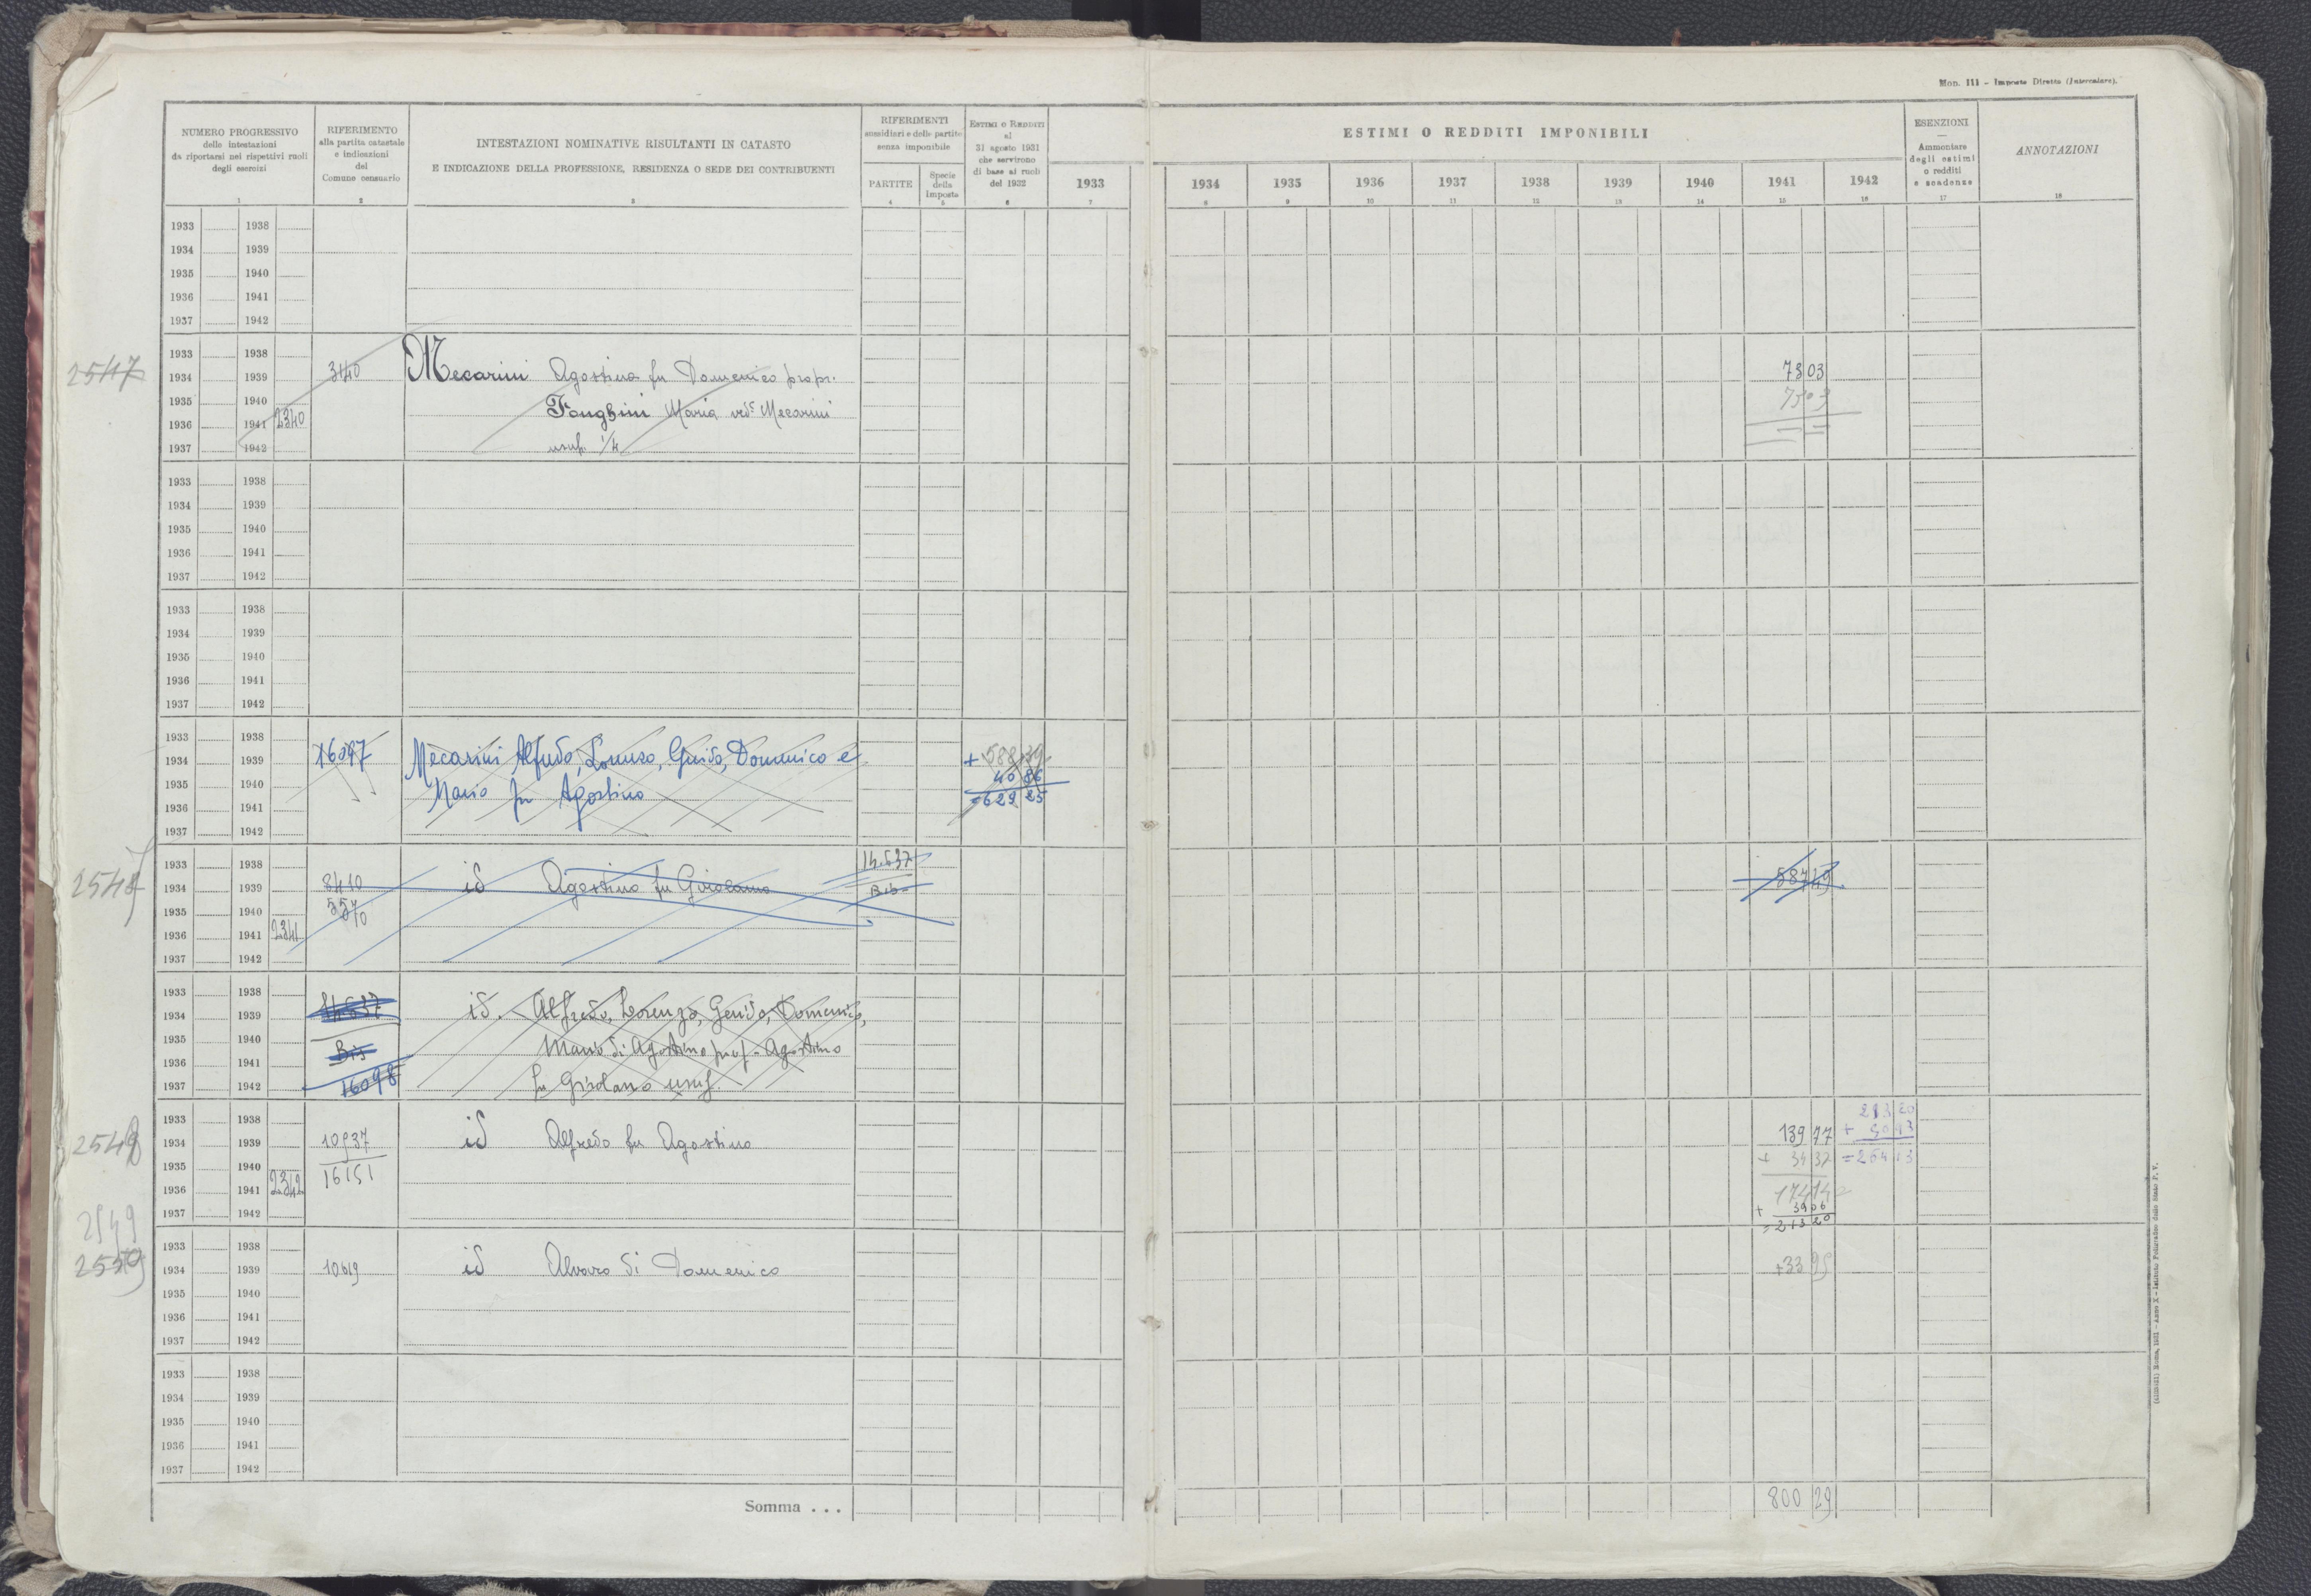 Mod. 111 - Imposte Dirette (Intercalare).
NUMERO PROGRESSIVO
delle intestazioni
da riportarsi nei rispettivi ruoli
degli esercizi
1
RIFERIMENTO
alla partita catastale
e indicazioni
del
Comune censuario
2
INTESTAZIONI NOMINATIVE RISULTANTI IN CATASTO
E INDICAZIONE DELLA PROFESSIONE, RESIDENZA O SEDE DEI CONTRIBUENTI
3
RIFERIMENTI
sussidiari e delle partite
senza imponibile
PARTITE
4
Specie
della
Imposta
5
ESTIMI O REDDITI
al
31 agosto 1931
che servirono
di base ai ruoli
del 1932
6
ESTIMI O REDDITI IMPONIBILI
1933 1934 1935 1936 1937 1938 1939 1940 1941 1942
7 8 9 10 11 12 13 14 15 16
ESENZIONI
—
Ammontare
degli estimi
o redditi
e scadenze
17
ANNOTAZIONI
18
1933 1938
1934 1939
1935 1940
1936 1941
1937 1942
1933 1938
2547 1934 1939 3140 Mecarini Agostina fu Domenico propr. 73 03
1935 1940 Fonghini Maria ved. Mecarini
1936 1941 2340
1937 1942 usuf. 1/4
1933 1938
1934 1939
1935 1940
1936 1941
1937 1942
1933 1938
1934 1939
1935 1940
1936 1941
1937 1942
1933 1938
1934 1939 16097 Mecarini Alfredo, Lorenzo, Guido, Domenico e + 588 39
1935 1940 Mario fu Agostino 40 86
1936 1941 = 629 25
1937 1942
1933 1938 14637
2548 1934 1939 8410 id Agostino fu Girolamo Bis 587 49
1935 1940 5570
1936 1941 2341
1937 1942
1933 1938
1934 1939 14637 id. Alfredo, Lorenzo, Guido, Domenico,
1935 1940 Bis Mario di Agostino prop - Agostino
1936 1941
1937 1942 16098 fu Girolamo usuf.
1933 1938 213 20
2549 1934 1939 10937 id Alfredo fu Agostino 139 77 + 50 93
1935 1940 16151 + 34 37 = 264 13
1936 1941 2342 174 14
1937 1942 + 39 06
2549 = 213 20
1933 1938
1934 1939 10619 id Alvaro di Domenico + 33 95
1935 1940
1936 1941
1937 1942
1933 1938
1934 1939
1935 1940
1936 1941
1937 1942
Somma . . . 800 29